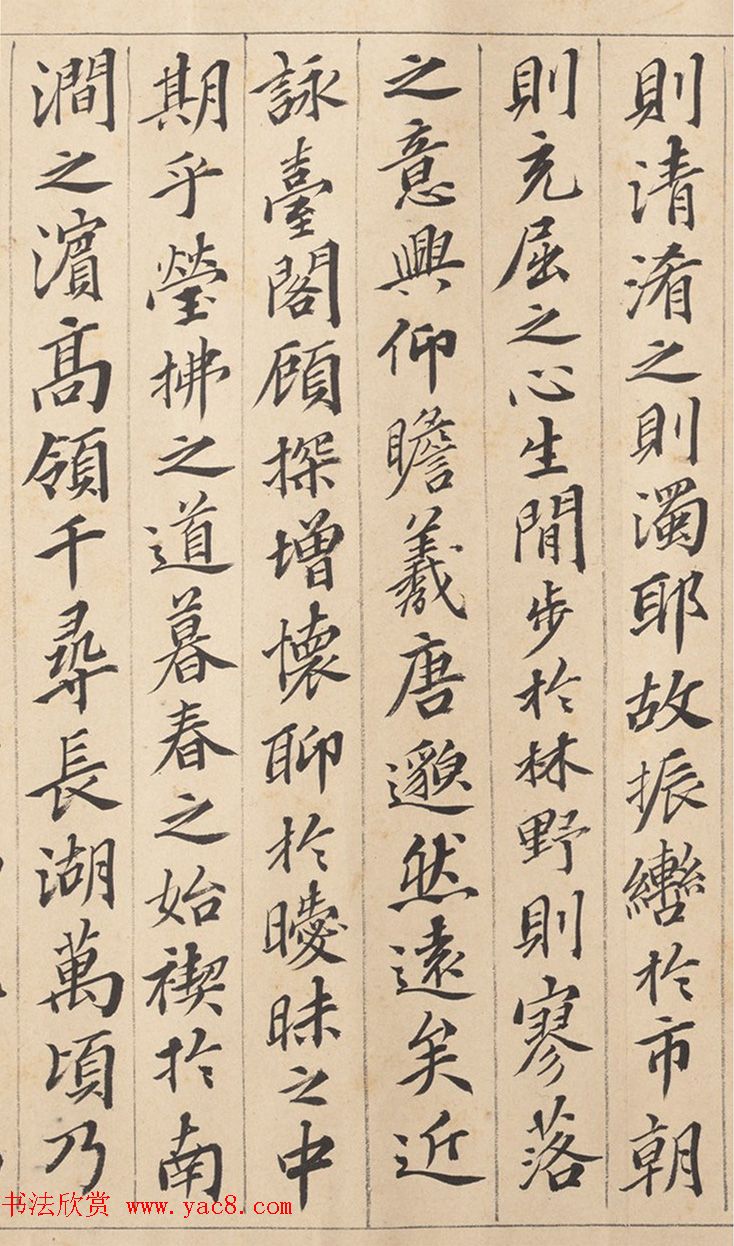 則清淆之則濁耶故振轡於市朝
則充屈之心生閒步於林野則寥落
之意興仰瞻羲唐邈然遠矣近
詠臺閣顧探增懷聊於曖昧之中
期乎瑩拂之道暮春之始禊於南
澗之濱髙領千尋長湖萬頃乃
书法欣赏 www.yac8.com